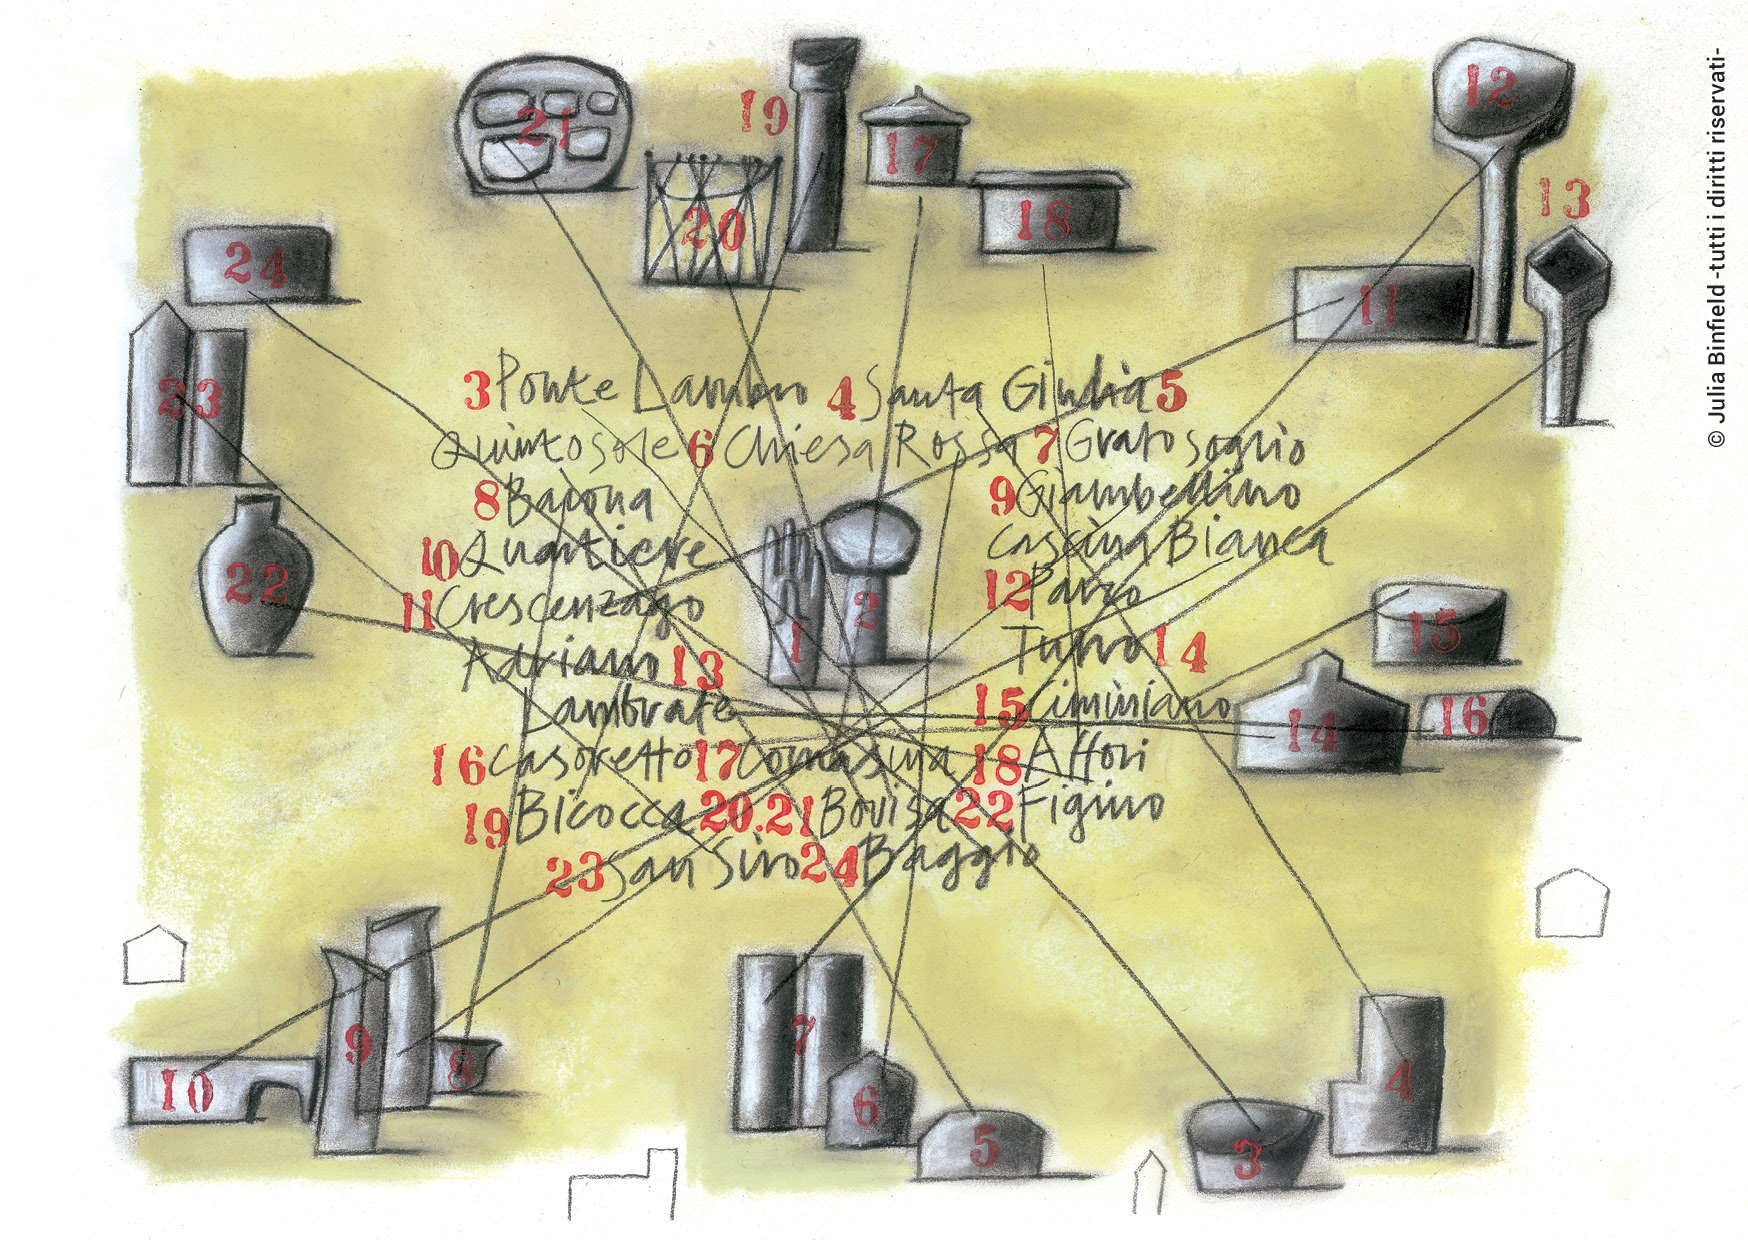 21
19
17
12
20
18
13
24
11
23
3 Ponte Lambro 4 Santa Giulia 5
Quintosole 6 Chiesa Rossa 7 Gratosoglio
8 Barona 9 Giambellino
10 Quartiere Cascina Bianca
22
11 Crescenzago 12 Parco
1
2
Adriano 13 Turro 14
15
Lambrate 15 Ciminiano
14
16
16 Casoretto 17 Comasina 18 Affori
19 Bicocca 20.21 Bovisa 22 Figino
23 San Siro 24 Baggio
10
9
8
7
6
5
3
4
© Julia Binfield -tutti i diritti riservati-